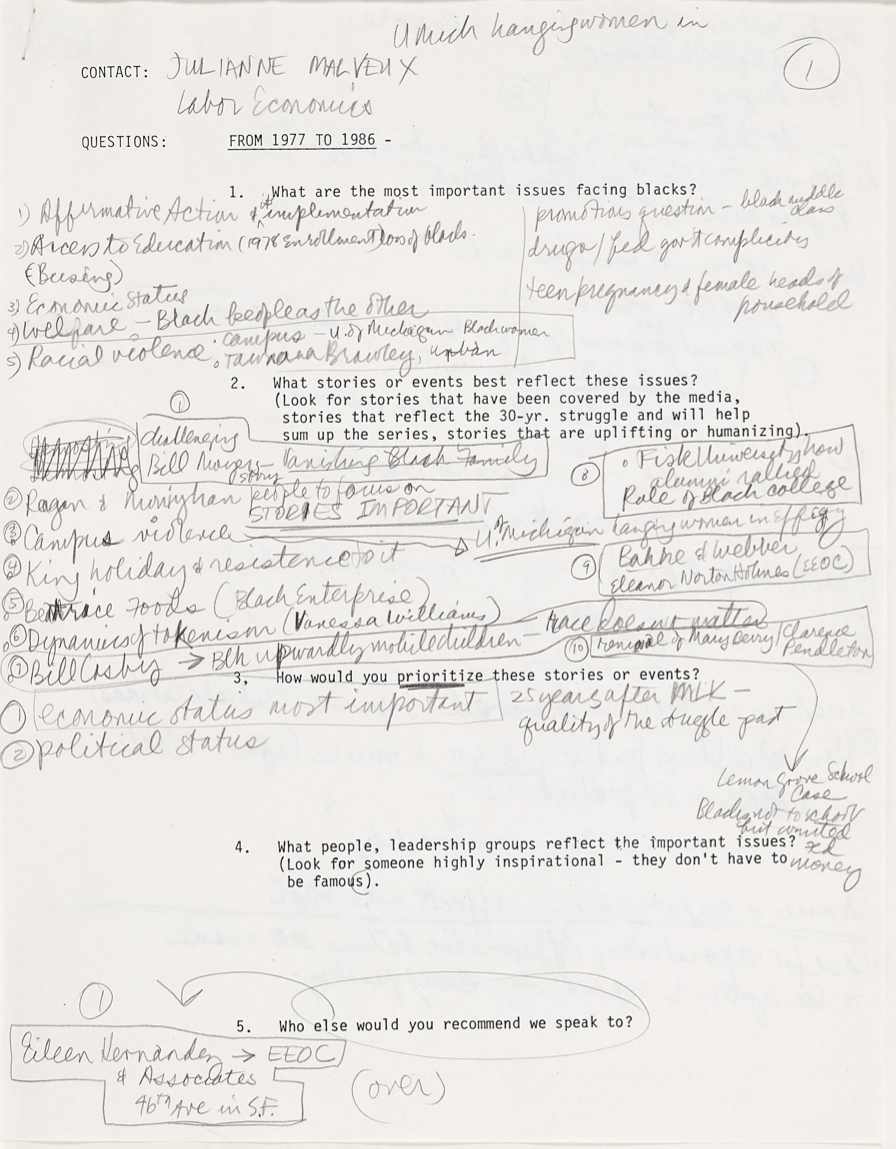 U Mich hanging women in
1
CONTACT: JULIANNE MALVEUX
Labor Economics
QUESTIONS: FROM 1977 TO 1986 -
1. What are the most important issues facing blacks?
1) Affirmative Action & implementation
2) Access to Education (1978 Enrollment) loss of blacks.
(Busing)
3) Economic Status
4) Welfare - Black people as the other
5) Racial violence : campus - U. of Michigan Black women
Tawnana Brawley, urban
promotions question - black middle
class
drugs / fed gov't complicity
teen pregnancy & female heads of
household
2. What stories or events best reflect these issues?
(Look for stories that have been covered by the media,
stories that reflect the 30-yr. struggle and will help
sum up the series, stories that are uplifting or humanizing).
1
challenging
Bill Moyers - Vanishing Black Family
story
2 Ragan & Moniyhan people to focus on
STORIES IMPORTANT
3 Campus violence
U. Michigan hanging women in effigy
4 King holiday & resistence to it
5 Beatrace Foods (Black Enterprise)
6 Dynamics of tokenism (Vanessa Williams) - race doesn't matter
7 Bill Cosby → Blk upwardly mobile children
8 Fisk University show
alumni rallied
Role of Black college
9 Bakke & Webber
Eleanor Norton Holmes (EEOC)
10 removal of Mary Berry / Clarence
Pendleton
3. How would you prioritize these stories or events?
1 economic status most important
2 political status
25 years after MLK -
quality of the struggle past
Lemon Grove School
Case
Blacks not to school
but wanted
money
4. What people, leadership groups reflect the important issues?
(Look for someone highly inspirational - they don't have to
be famous).
5. Who else would you recommend we speak to?
1
Eileen Hernandez → EEOC
& Associates
46th Ave in S.F.
(over)